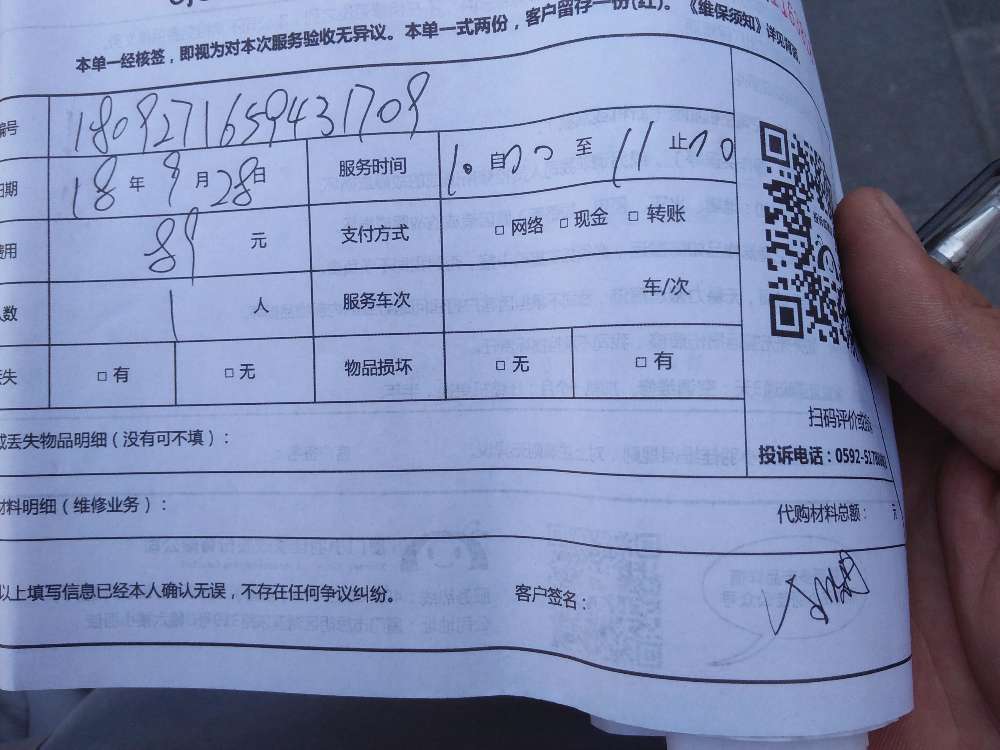 本单一经核签，即视为对本次服务验收无异议。本单一式两份，客户留存一份(红)。《维保须知》详见背面
编号 1809271659431709
日期 18 年 9 月 28 日 服务时间 10 自 00 至 11 止
费用 89 元 支付方式 □ 网络 □ 现金 □ 转账
人数 1 人 服务车次 车/次
丢失 □ 有 □ 无 物品损坏 □ 无 □ 有
或丢失物品明细（没有可不填）：
扫码评价或
投诉电话：0592-5178
材料明细（维修业务）：
代购材料总额： 元
以上填写信息已经本人确认无误，不存在任何争议纠纷。 客户签名：